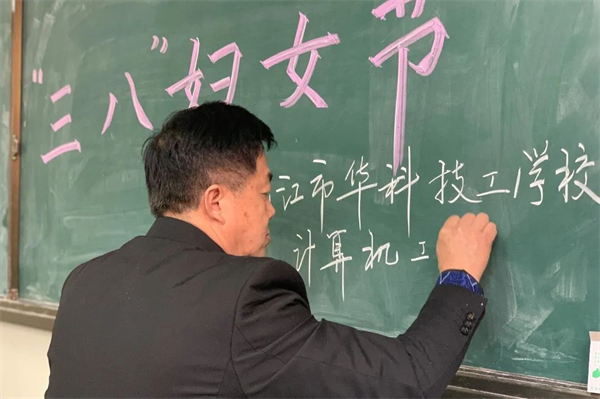 “三八”妇女节
江市华科技工学校
计算机工